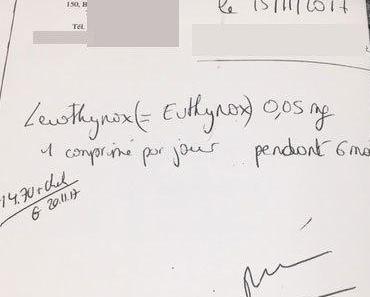 150, B
le 15/11/2017
Tél.
Levothyrox (= Euthyrox) 0,05 mg
1 comprimé par jour pendant 6 mo
20.11.17